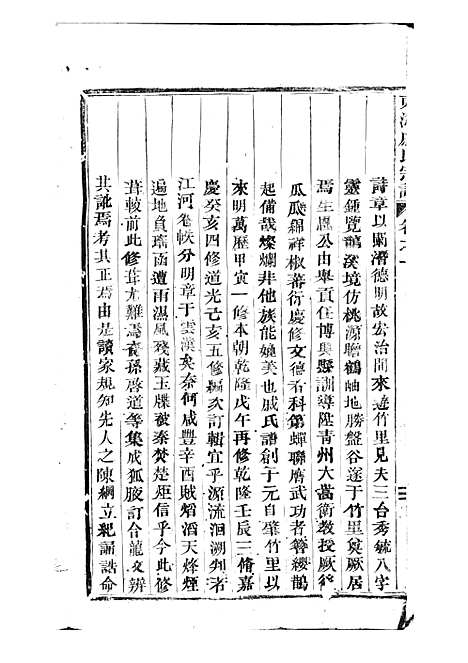 東海戚氏宗譜 卷之一
詩章以嗣潛德明故宏治間來遊竹里見夫三台秀毓八字
靈鍾覽鸛溪境仿桃源瞻鶴岫地勝盤谷遂于竹里奠厥居
焉生愚公由舉貢任博興縣訓導陞青州大嵩衛教授厥後
瓜瓞綿祥椒蕃衍慶修文德者科第蟬聯膺武功者簪纓鵲
起備哉燦爛非他族能媲美也戚氏譜創于元自肇竹里以
來明萬歷甲寅一修本朝乾隆戊午再修乾隆壬辰三脩嘉
慶癸亥四修道光己亥五修編次訂輯宜乎源流洄溯判若
江河卷帙分明章于雲漢矣奈何咸豐辛酉賊熖滔天烽煙
遍地負琦函遭雨濕風殘藏玉牒被秦焚楚炬信乎今此修
葺較前此修葺尤難焉裔孫啓道等集成狐腋訂合龍文辨
其訛焉考其正焉由是讀家規知先人之陳綱立紀誦誥命